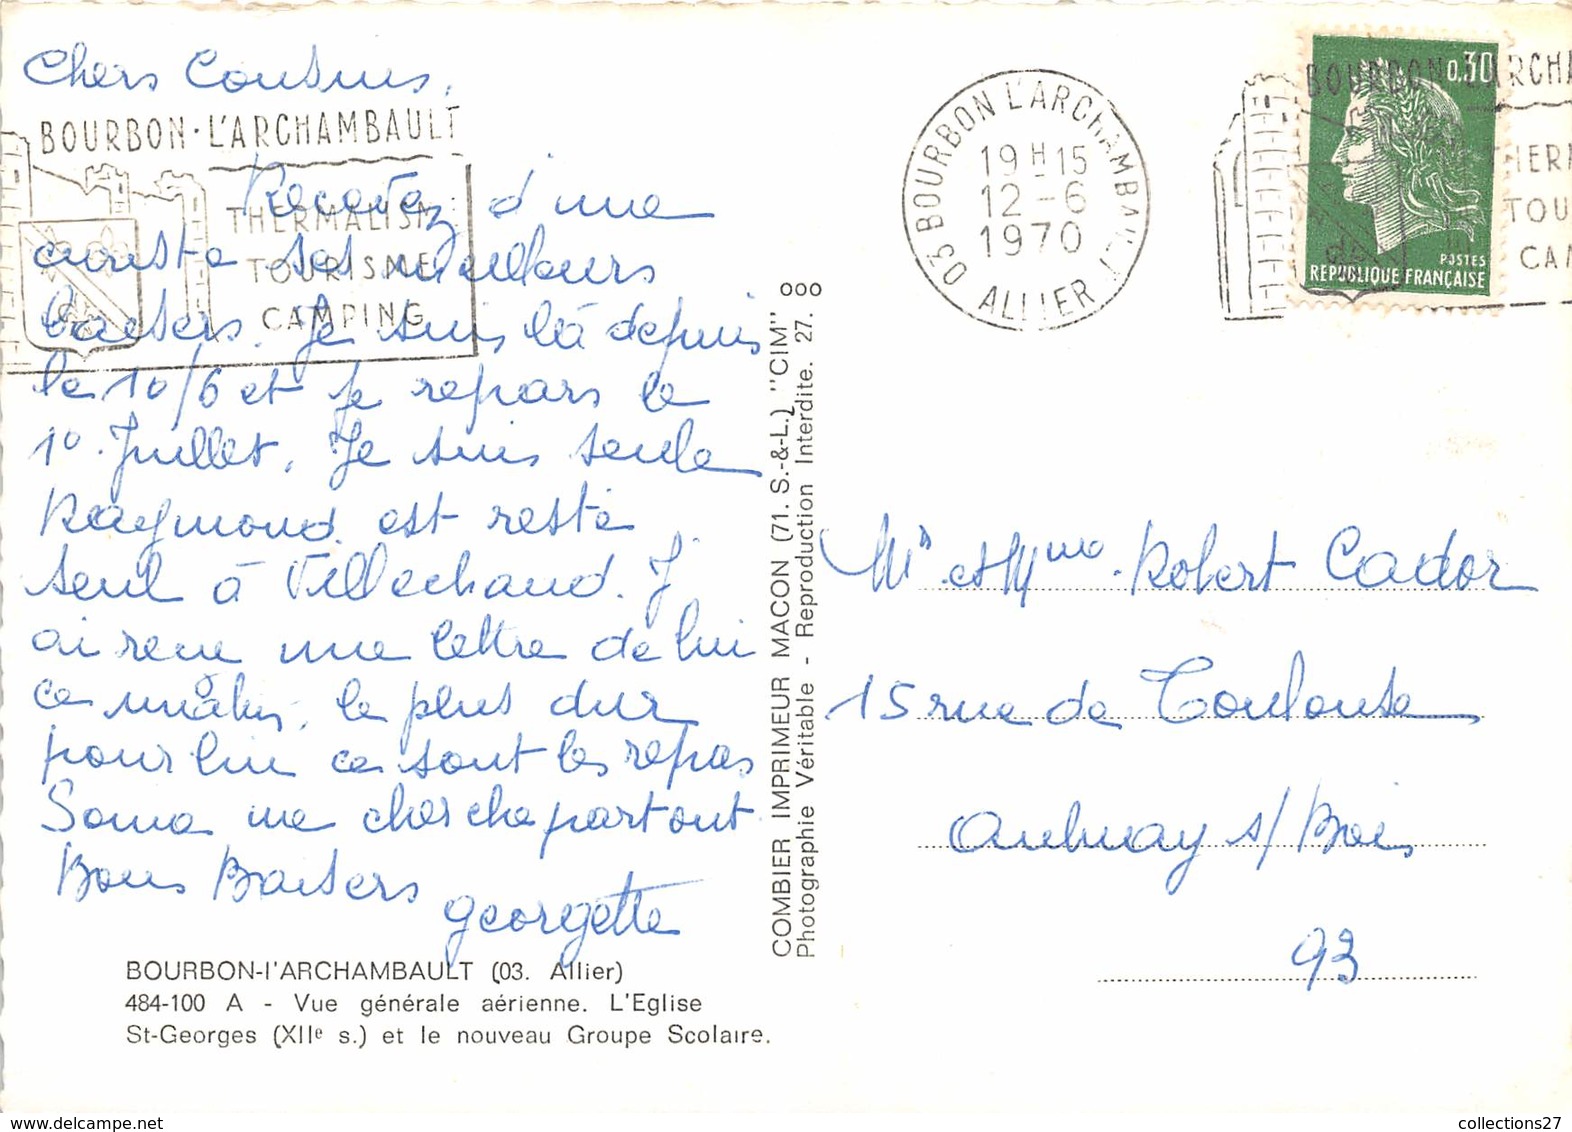 Chers Cousins,
BOURBON·L'ARCHAMBAULT
THERMALISME
TOURISME
CAMPING
Recevez d'une
curiste ses meilleurs
baisers. Je suis là depuis
le 10/6 et je repars le
1º Juillet. Je suis seule
Raymond est resté
seul à Villechaud. J'
ai reçu une lettre de lui
ce matin, le plus dur
pour lui ce sont les repas
me cherche partout
Bons Baisers
georgette
BOURBON-l'ARCHAMBAULT (03. Allier)
484-100 A - Vue générale aérienne. L'Eglise
St-Georges (XIIe s.) et le nouveau Groupe Scolaire.
COMBIER IMPRIMEUR MACON (71. S.-&-L.) "CIM"
Photographie Véritable - Reproduction Interdite. 27.
ooo
03 BOURBON L'ARCHAMBAULT
19H15
12-6
1970
ALLIER
BOURBON·L'ARCHA
THERM
TOU
CAM
0,30
POSTES
REPUBLIQUE FRANÇAISE
Mr et Mme Robert Cador
15 rue de Toulouse
Aulnay s/Bois
93
collections27